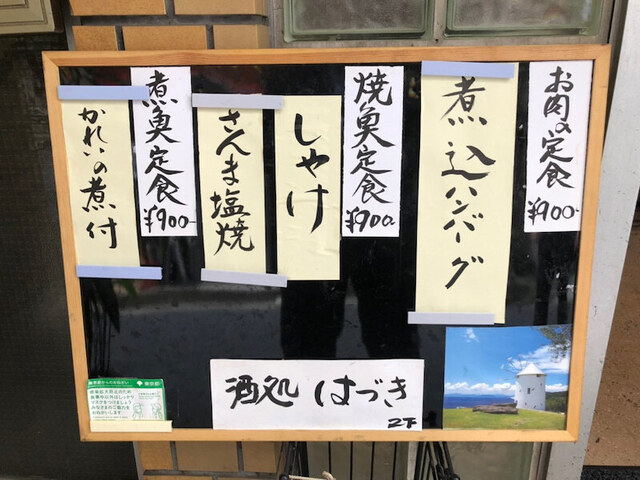 お肉の定食
¥900-
煮込ハンバーグ
焼魚定食
¥900-
しゃけ
さんま塩焼
煮魚定食
¥900-
かれいの煮付
酒処 はづき
2F
東京都